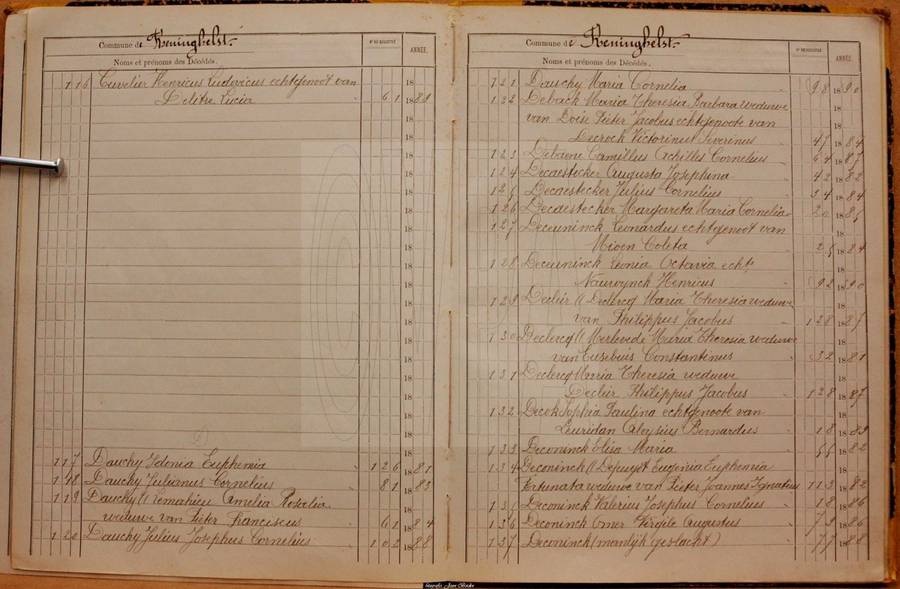 Commune de Reninghelst.
Noms et prénoms des Décédés.
N° DU REGISTRE
ANNÉE.
116 Cuvelier Henricus Ludovicus echtgenoot van
Delitre Lucia 61 1889
117 Dauchy Idonia Euphemia 126 1881
118 Dauchy Julianus Cornelius 81 1883
119 Dauchy // Lemahieu Amelia Rosalia
weduwe van Pieter Franciscus 61 1884
120 Dauchy Julius Josephus Cornelius 102 1888
Commune de Reninghelst.
Noms et prénoms des Décédés.
N° DU REGISTRE
ANNÉE.
121 Dauchy Maria Cornelia 98 1890
122 Deback Maria Theresia Barbara weduwe
van Pieter Jacobus echtgenoote van
Decrock Victorinus Severinus 47 1884
123 Debaene Camillus Achilles Cornelius 64 1887
124 Decaestecker Augusta Josephina 42 1882
125 Decaestecker Julius Cornelius 34 1884
126 Decaestecker Margareta Maria Cornelia 20 1886
127 Deceuninck Leonardus echtgenoot van
Mioen Coleta 25 1884
128 Deceuninck Leonia Octavia echte
Nauwynck Henricus 92 1890
129 // Declercq Maria Theresia weduwe
van Philippus Jacobus 128 1887
130 Declercq // Merlevede Maria Theresia weduwe
van Eusebius Constantinus 32 1881
131 Declercq Maria Theresia weduwe
Philippus Jacobus 128 1887
132 Decok Sophia Paulina echtgenoote van
Leuridan Aloysius Bernardus 18
133 Deconinck Elisa Maria 55 1882
134 Deconinck // Depuydt Eugenia Euphemia
Fortunata weduwe van Pieter Joannes Ignatius 113 1882
135 Deconinck Valerius Josephus Cornelius 18 1886
136 Deconinck Omer Virgile Augustus 73 1886
137 Deconinck (manlijk geslacht) 77 1888